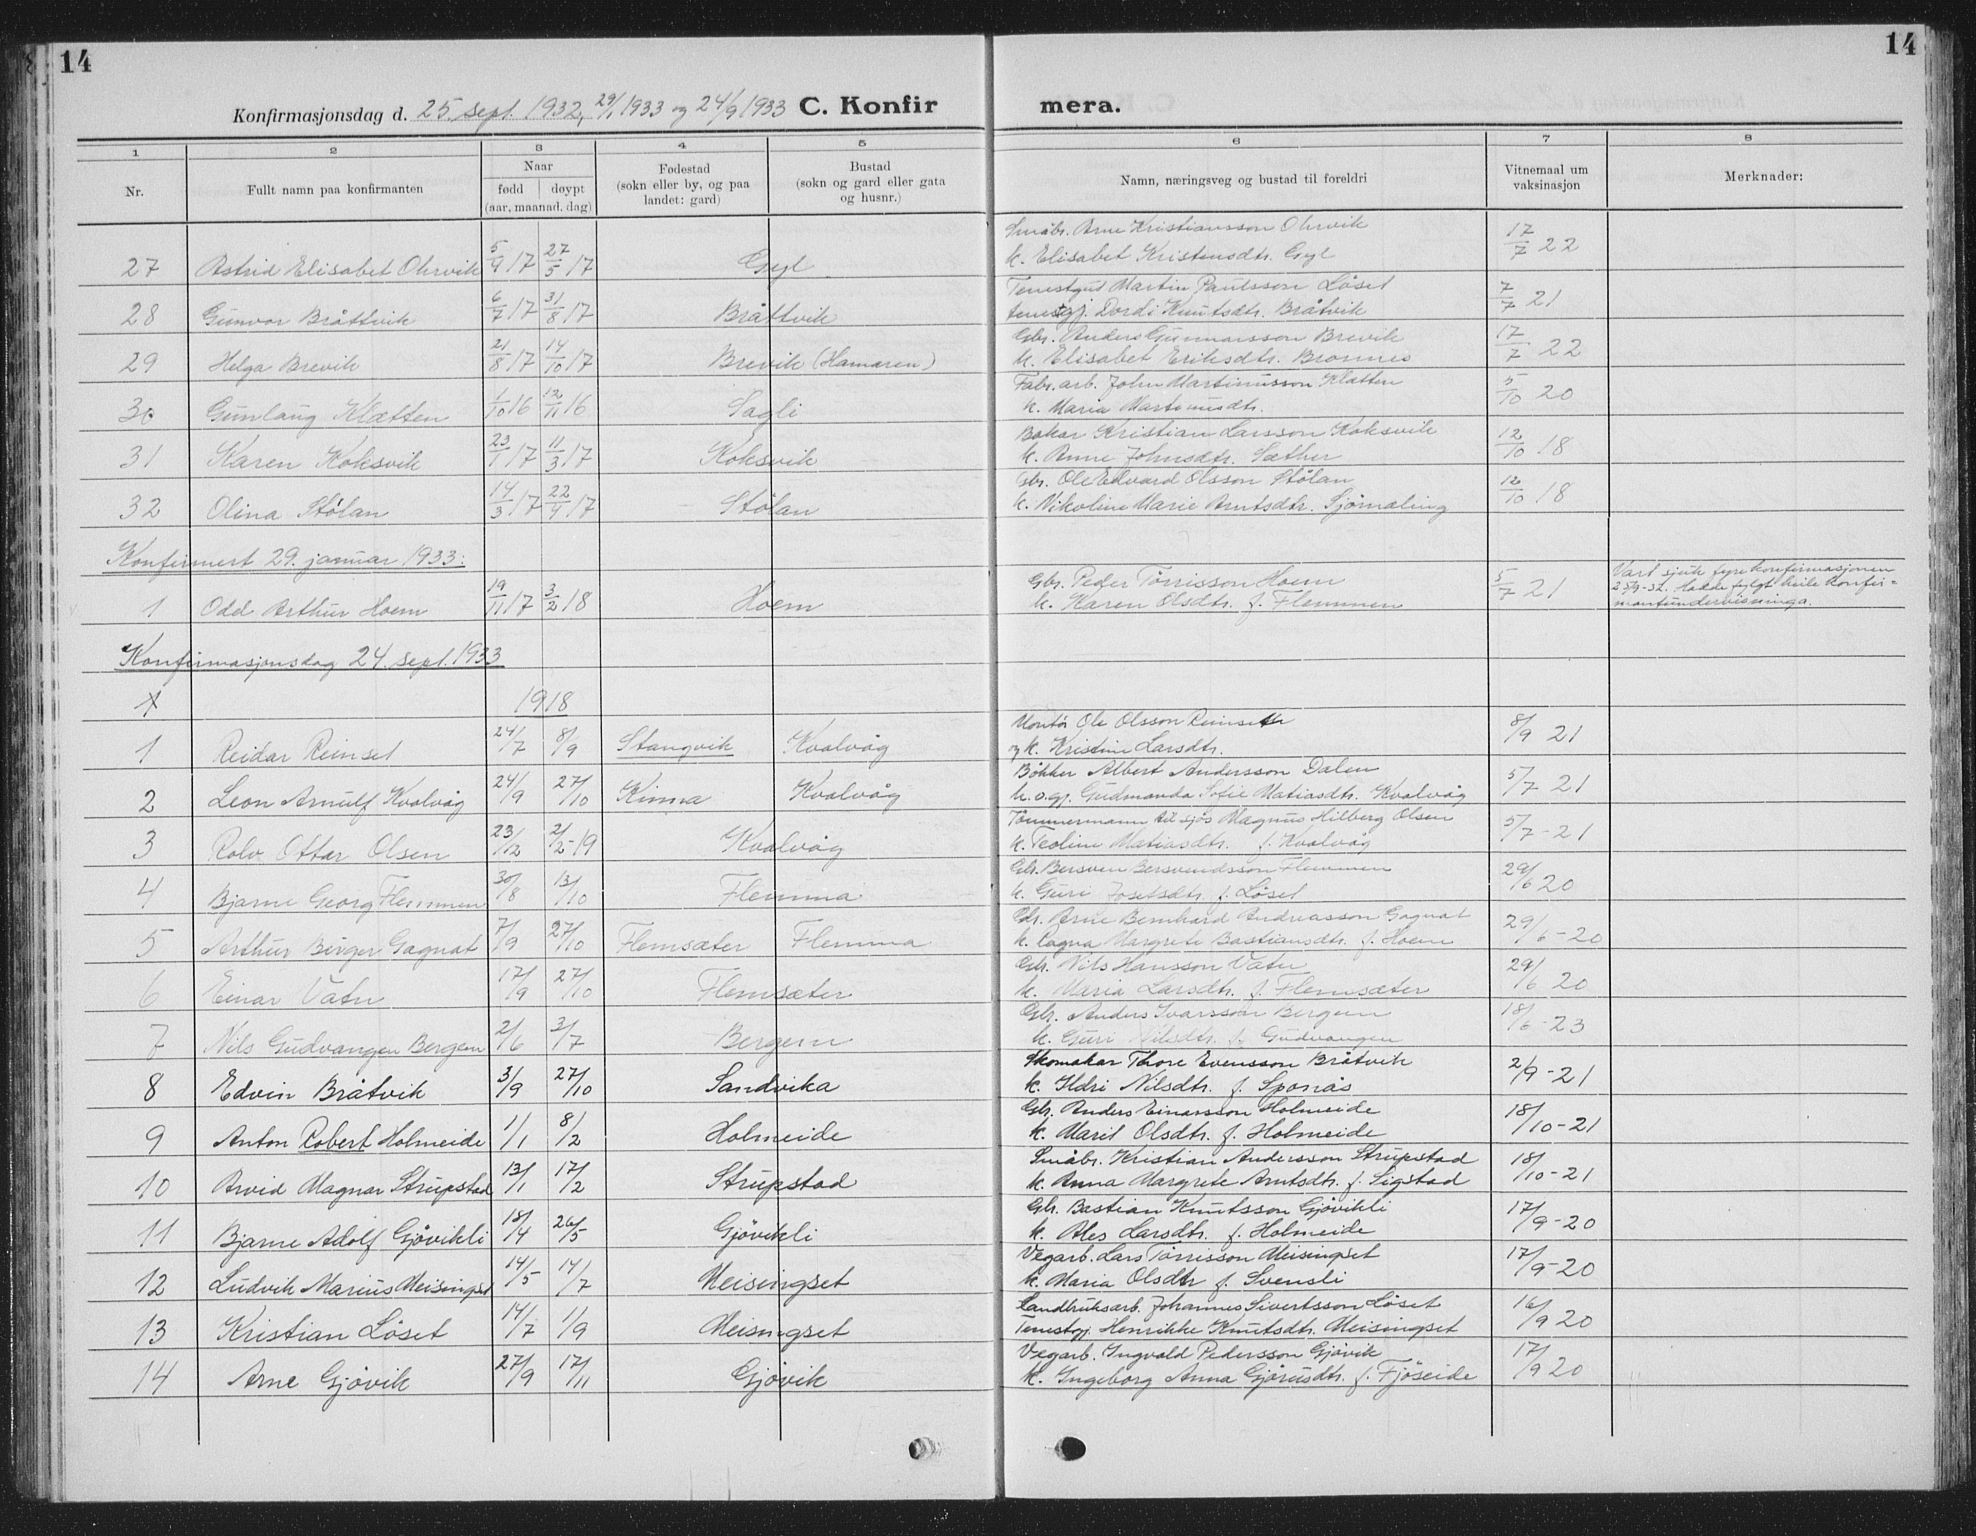 14
14
Konfirmasjonsdag d. 25. sept. 1932, 29/1 1933 og 24/9 1933 C. Konfir mera.
1 2 3 4 5 6 7 8
Nr. Fullt namn paa konfirmanten Naar Fødestad Bustad Namn, næringsveg og bustad til foreldri Vitnemaal um vaksinasjon Merknader:
fødd døypt (sokn eller by, og paa landet: gard) (sokn og gard eller gata og husnr.)
(aar, maanad, dag)
Småbr. Arne Kristiansson Ohrvik
27 Astrid Elisabet Ohrvik 5/9 17 27/5 17 Gyl k. Elisabet Kristensdtr. Gyl 17/7 22
Tenestgut Martin Paulsson Löset
28 Gunvor Bråttvik 6/7 17 31/8 17 Bråttvik tenestgj. Dordi Knutsdtr. Bråtvik 7/7 21
Gbr. Anders Gunnarsson Brevik
29 Helga Brevik 21/8 17 14/10 17 Brevik (Hamaren) k. Elisabet Eriksdtr. Bronnes 17/7 22
Fabr. arb. John Martinusson Klætten
30 Gunlaug Klætten 1/10 16 12/11 16 Sagli k. Maria Martinusdtr. 5/10 20
Bakar Kristian Larsson Koksvik
31 Karen Koksvik 23/1 17 11/3 17 Koksvik k. Anne Johnsdtr. Sæther 12/10 18
Gbr. Ole Edvard Olsson Stölan
32 Olina Stölan 14/3 17 22/4 17 Stölan k. Nikoline Marie Arntsdtr. Sjömæling 12/10 18
Konfirmert 29. januar 1933:
Gbr. Peder Törrisson Hoem
1 Odd Arthur Hoem 19/11 17 3/2 18 Hoem k. Karen Olsdtr. f. Flemmen 5/7 21
Vart sjuk fyre konfirmasjonen
25/9-32. Hadde fylgt heile konfir=
mantundervisninga.
Konfirmasjonsdag 24. sept. 1933
1918
Montör Ole Olsson Reinseth
1 Reidar Reinset 24/7 8/9 Stangvik Kvalvåg og k. Kristine Larsdtr. 8/9 21
Bökker Albert Andersson Dalen
2 Leon Arnulf Kvalvåg 24/9 27/10 Kinna Kvalvåg k. o. gj. Gudmanda Sofie Matiasdtr. Kvalvåg 5/7 21
Tömmermann til sjös Magnus Hilberg Olsen
3 Rolv Ottar Olsen 23/12 2/2-19 Kvalvåg k. Teoline Matiasdtr. f. Kvalvåg 5/7-21
Gbr. Bersven Bersvendsson Flemmen
4 Bjarne Georg Flemmen 30/8 13/10 Flemma k. Guri Josefsdtr. f. Löset 29/6 20
Gbr. Arne Bernhard Andreasson Gagnat
5 Arthur Birger Gagnat 7/9 27/10 Flemsæter Flemma k. Ragna Margrete Bastiansdtr. f. Hoem 29/6-20
Gbr. Nils Hansson Vatn
6 Einar Vatn 17/9 27/10 Flemsæter k. Maria Larsdtr. f. Flemsæter 29/6 20
Gbr. Anders Ivarsson Bergem
7 Nils Gudvangen Bergem 2/6 3/7 Bergem k. Guri Nilsdtr. f. Gudvangen 18/6-23
Skomakar Thore Evensson Bråtvik
8 Edvin Bråtvik 3/9 27/10 Sandvika k. Ildri Nilsdtr. f. Sponås 2/9-21
Gbr. Anders Einarsson Holmeide
9 Anton Robert Holmeide 1/1 8/2 Holmeide k. Marit Olsdtr. f. Holmeide 18/10-21
Småbr. Kristian Andersson Strupstad
10 Arvid Magnar Strupstad 13/1 17/2 Strupstad k. Anna Margrete Arntsdtr. f. Sigstad 18/10-21
Gbr. Bastian Knutsson Gjövikli
11 Bjarne Adolf Gjövikli 18/4 26/5 Gjövikli k. Ales Larsdtr. f. Holmeide 17/9-20
Vegarb. Lars Törrisson Meisingset
12 Ludvik Marius Meisingset 14/5 14/7 Meisingset k. Maria Olsdtr f. Svensli 17/9-20
Landbruksarb. Johannes Sivertsson Löset
13 Kristian Löset 14/7 1/9 Meisingset Tenestgj. Henrikke Knutsdtr. Meisingset 16/9 20
Vegarb. Ingvald Pedersson Gjövik
14 Arne Gjövik 27/9 17/11 Gjövik k. Ingeborg Anna Gjörusdtr. f. Fjöseide 17/9 20